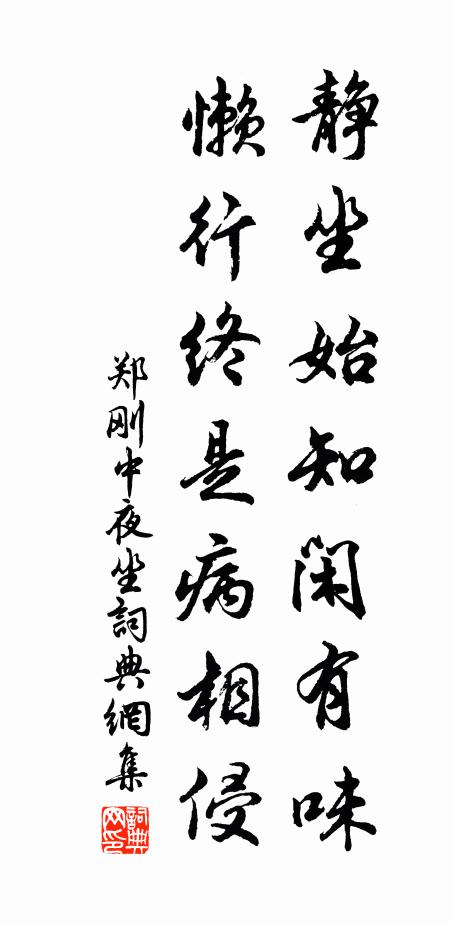 静坐始知闲有味
懒行终是病相侵
郑刚中夜坐詞典網集
詞典网印